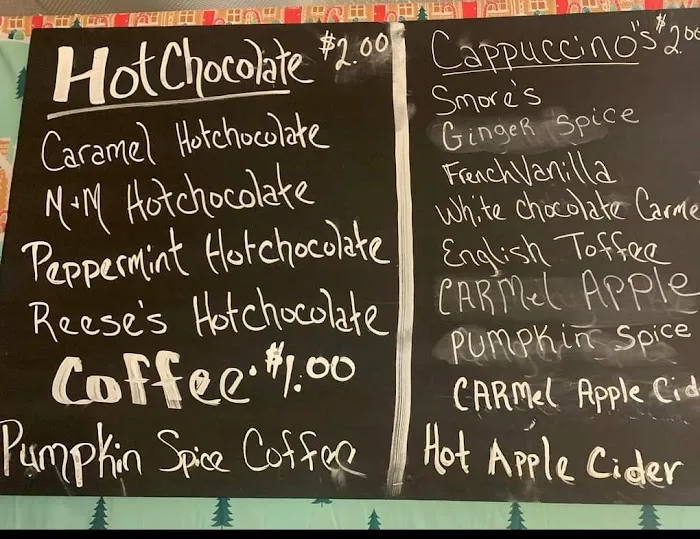 Hot Chocolate $2.00
Caramel Hotchocolate
M+M Hotchocolate
Peppermint Hotchocolate
Reese's Hotchocolate
Coffee. $1.00
Pumpkin Spice Coffee
Cappuccino's $2.00
Smore's
Ginger Spice
French Vanilla
White Chocolate Carme
English Toffee
CARMel APPle
PUMPKin Spice
CARMel Apple Cid
Hot Apple Cider